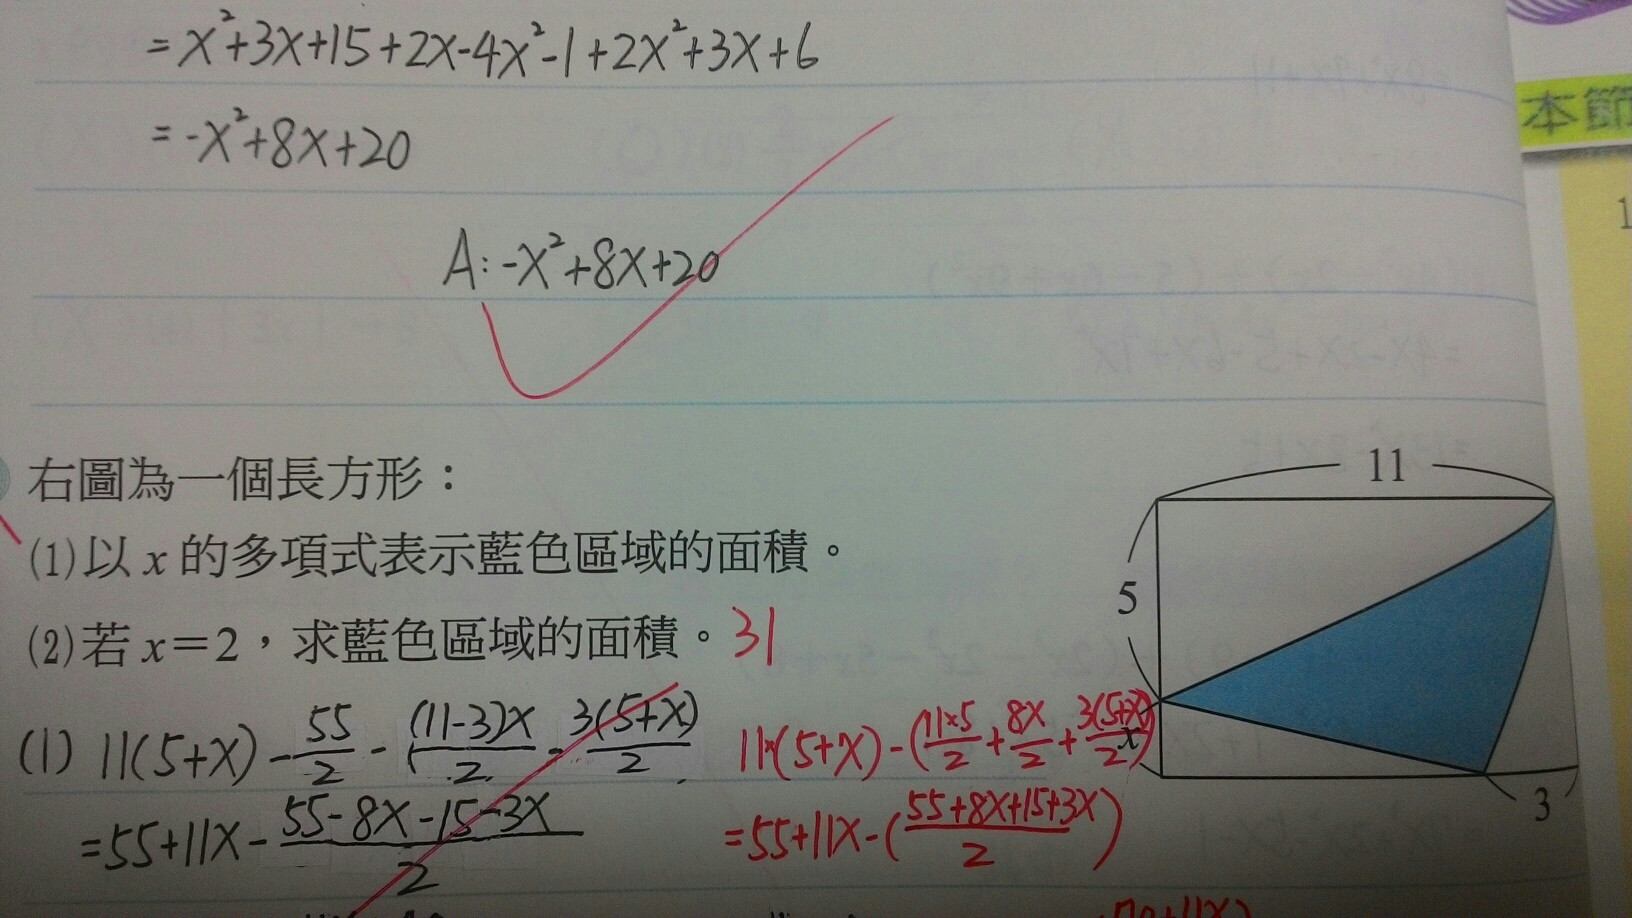 = x²+3x+15+2x-4x²-1+2x²+3x+6
= -x²+8x+20
本節
1
A: -x²+8x+20
右圖為一個長方形：
(1)以 x 的多項式表示藍色區域的面積。
(2)若 x＝2，求藍色區域的面積。31
11
5
x
3
(1) 11(5+x) - 55/2 - (11-3)x/2 - 3(5+x)/2
= 55+11x - 55-8x-15-3x/2
11×(5+x) - (11×5/2 + 8x/2 + 3(5+x)/2)
= 55+11x - (55+8x+15+3x/2)